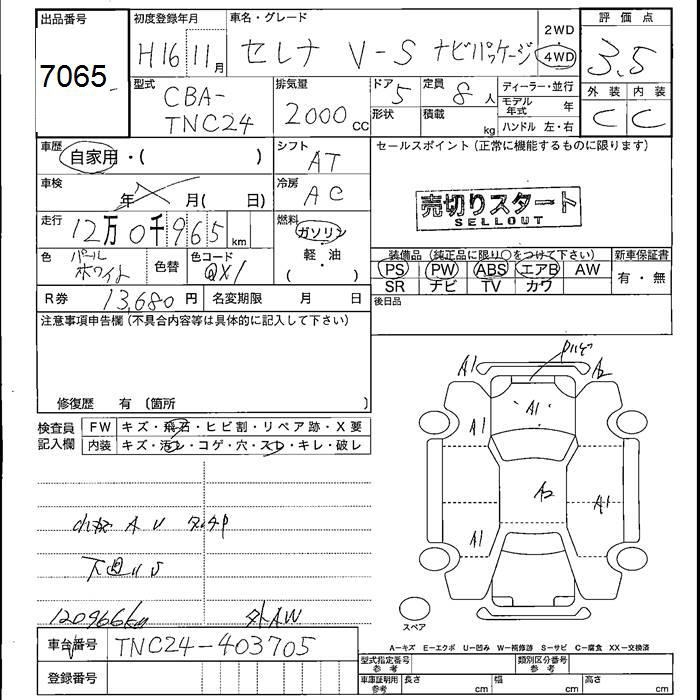 出品番号 初度登録年月 車名・グレード 評価点
7065 H16 11月 セレナ V-S ナビパッケージ 2WD 4WD 3.5
型式 排気量 ドア 定員 ディーラー・並行 外装 内装
CBA-TNC24 2000cc 5 8人 モデル年式 年 C C
形状 積載 kg ハンドル 左・右
車歴 自家用・( ) シフト AT セールスポイント (正常に機能するものに限ります)
車検 年 月( 日) 冷房 AC
売切りスタート
SELLOUT
走行 12万0千965km 燃料 ガソリン
軽・油
( )
色 パールホワイト 色替 色コード QX1
装備品 (純正品に限り○をつけて下さい) 新車保証書
PS PW ABS エアB AW 有・無
SR ナビ TV カワ
R券 13,680円 名変期限 月 日 後日品
注意事項申告欄(不具合内容等は具体的に記入して下さい)
修復歴 有 〔箇所 〕
検査員記入欄 FW キズ・飛石・ヒビ割・リペア跡・X要
内装 キズ・汚レ・コゲ・穴・スレ・キレ・破レ
A1 A2
A1 A1
A2 A1
A1
120966km 外AW
スペア
車台番号 TNC24-403705
A-キズ E-エクボ U-凹み W-補修跡 S-サビ C-腐食 XX-交換済
登録番号
型式指定番号 参考 類別区分番号 参考
車庫証明用 参考 長さ cm 幅 cm 高さ cm